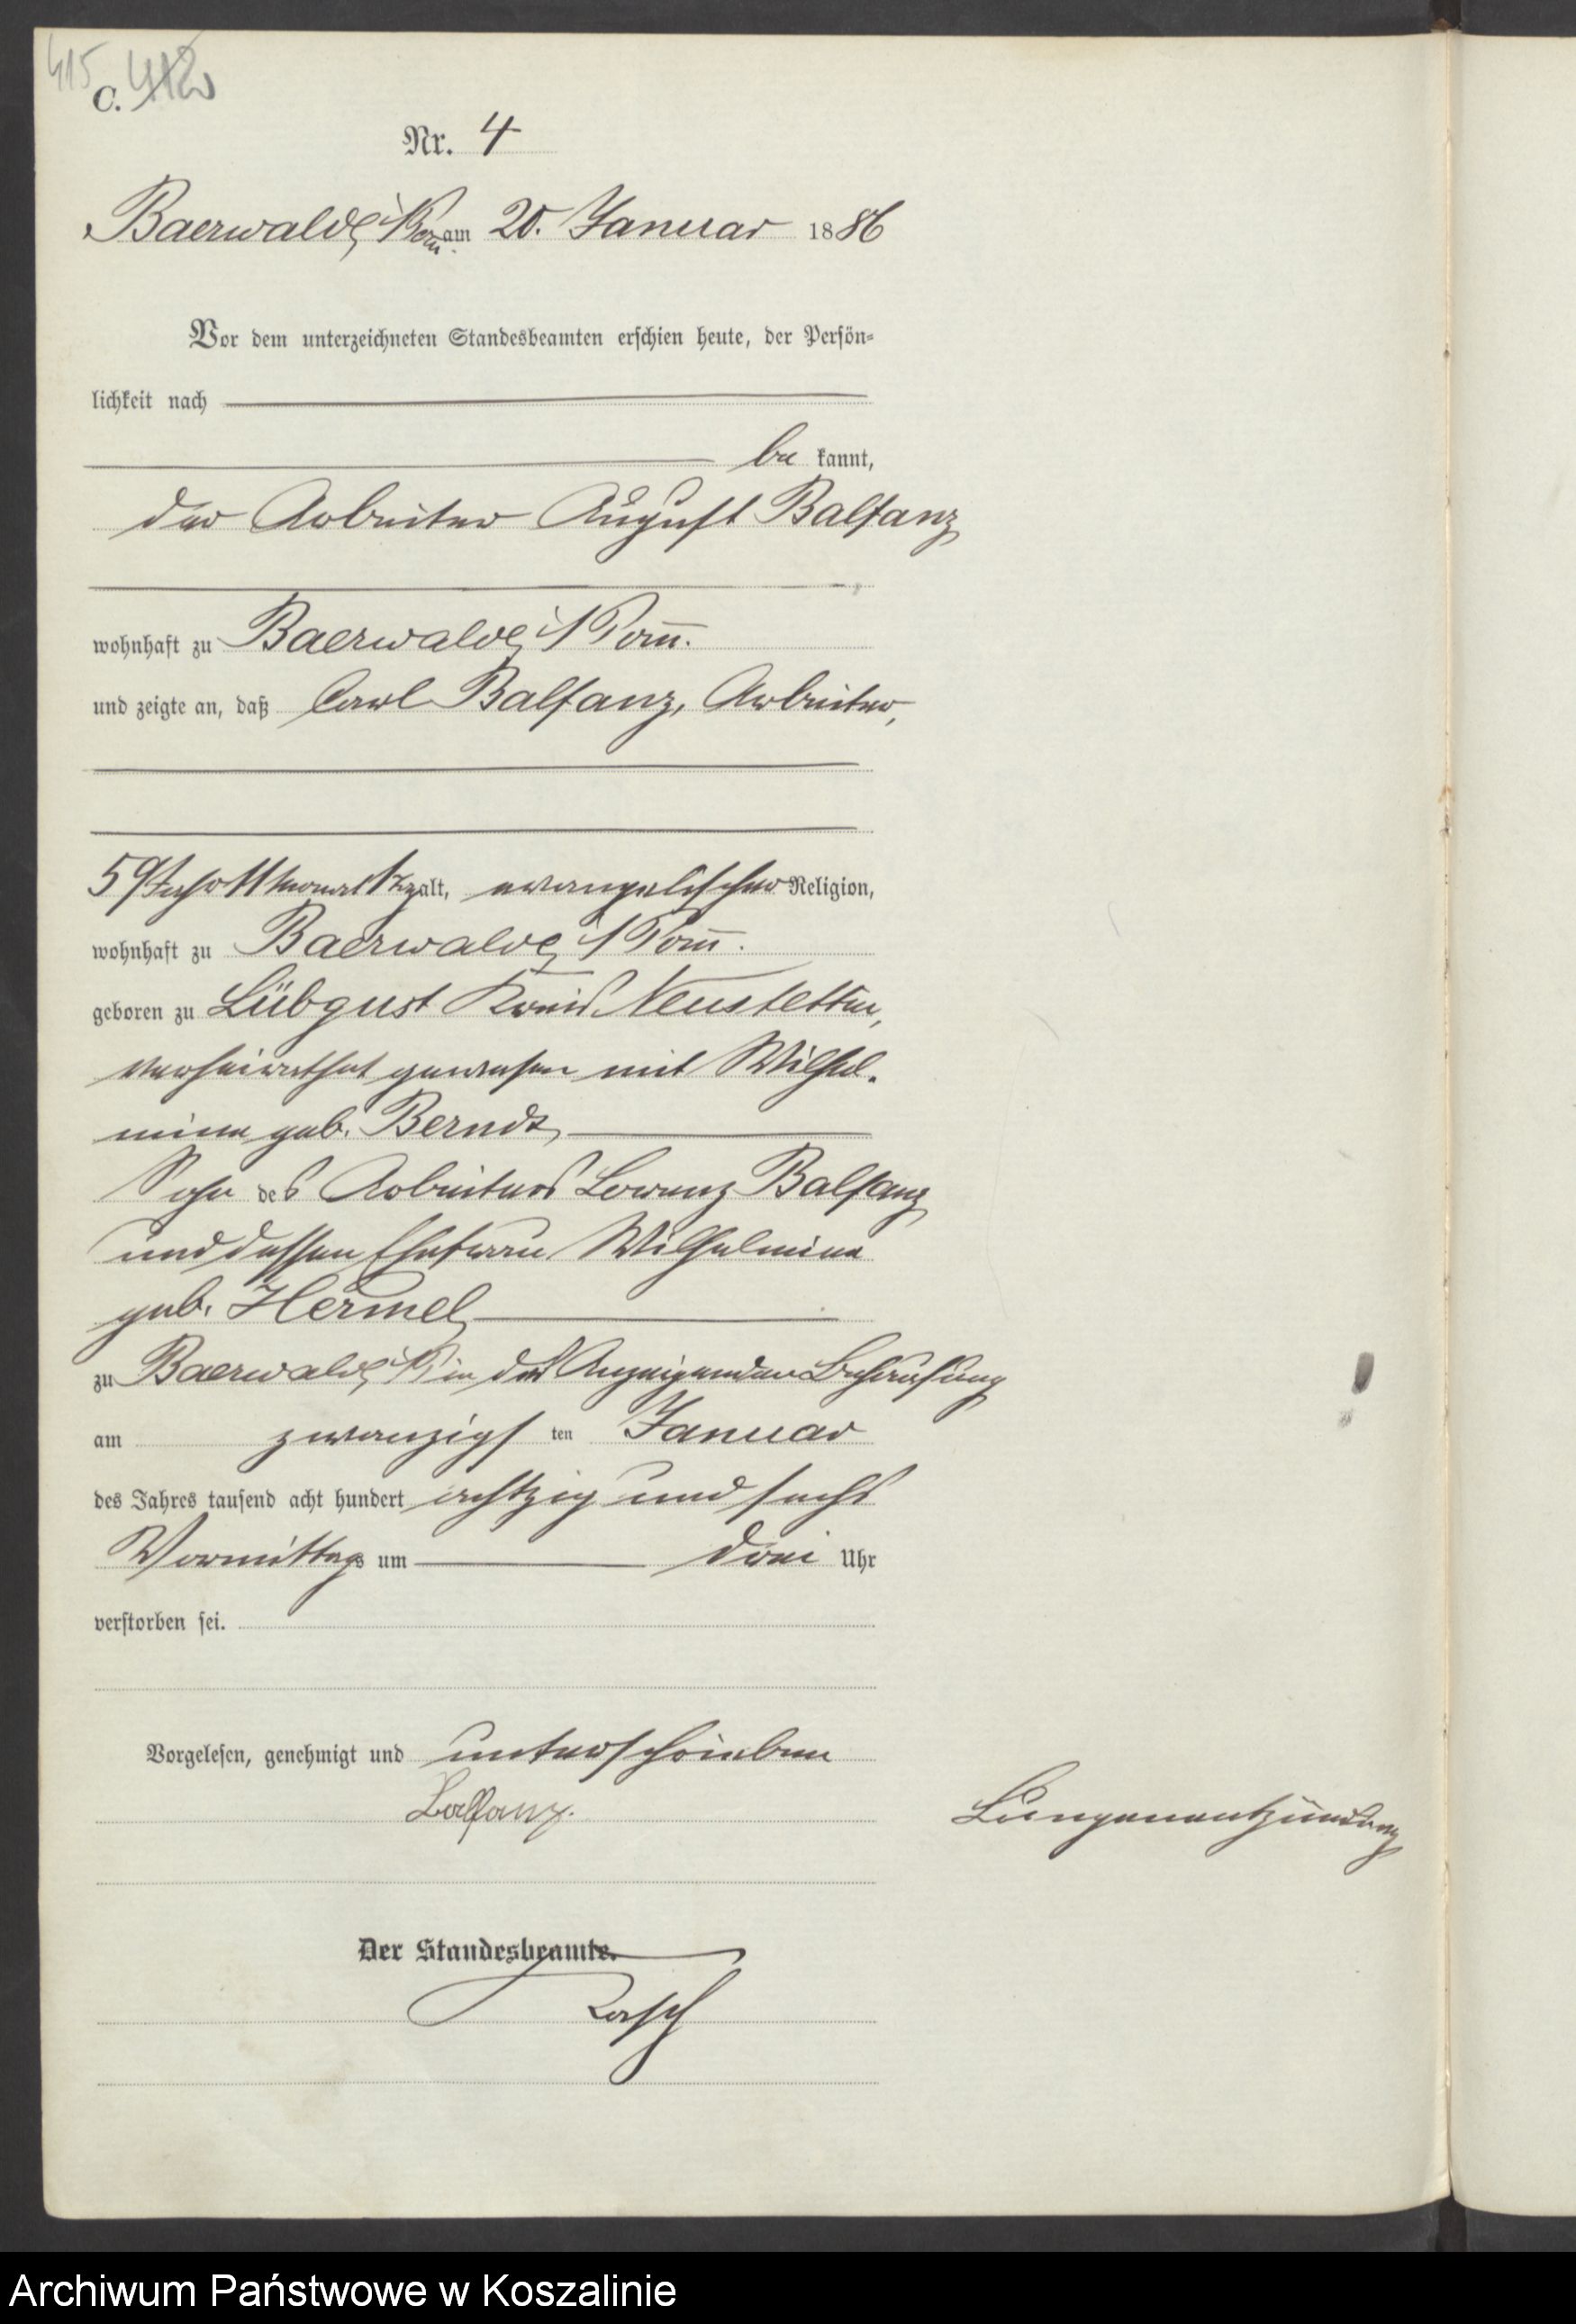 415
C. 412
Nr. 4
Baerwalde i/Pom am 20. Januar 1886
Vor dem unterzeichneten Standesbeamten erschien heute, der Persön-
lichkeit nach
be kannt,
der Arbeiter August Balfanz
wohnhaft zu Baerwalde i/Pom.
und zeigte an, daß Carl Balfanz, Arbeiter,
59 Jahr 11 Monat alt, evangelischer Religion,
wohnhaft zu Baerwalde i/Pom.
geboren zu Lübgust Kreis Neustettin,
verheirathet gewesen mit Wilhel-
mine geb. Berndt,
Sohn des Arbeiters Lorenz Balfanz
und dessen Ehefrau Wilhelmine
geb. Hermel,
zu Baerwalde i/P in des Anzeigenden Behausung
am zwanzigs ten Januar
des Jahres tausend acht hundert achtzig und sechs
Vormittags um drei Uhr
verstorben sei.
Vorgelesen, genehmigt und unterschrieben
Balfanz.
Lungenentzündung
Der Standesbeamte.
Archiwum Państwowe w Koszalinie